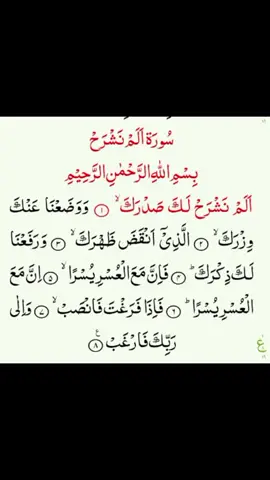 سُورَة اَلَمْ نَشْرَحْ
بِسْمِ اللهِ الرَّحْمٰنِ الرَّحِيْمِ
اَلَمْ نَشْرَحْ لَكَ صَدْرَكَ ۙ ۝١ وَوَضَعْنَا عَنْكَ
وِزْرَكَ ۙ ۝٢ الَّذِيْٓ اَنْقَضَ ظَهْرَكَ ۙ ۝٣ وَرَفَعْنَا
لَكَ ذِكْرَكَ ؕ ۝٤ فَاِنَّ مَعَ الْعُسْرِ يُسْرًا ۙ ۝٥ اِنَّ مَعَ
الْعُسْرِ يُسْرًا ؕ ۝٦ فَاِذَا فَرَغْتَ فَانْصَبْ ۙ ۝٧ وَاِلٰى
رَبِّكَ فَارْغَبْ ۝٨